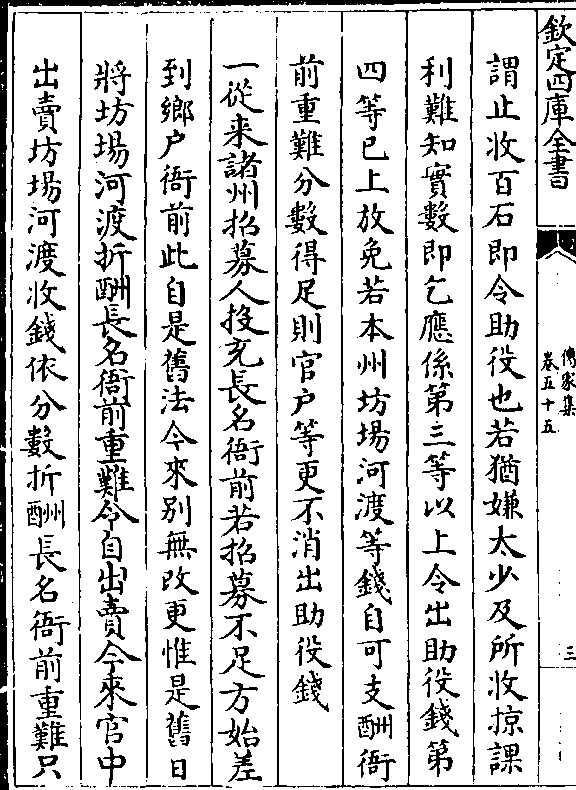 欽定四庫全書
傳家集
卷五十五
三
謂止收百石即令助役也若猶嫌太少及所收掠課
利難知實數即乞應係第三等以上令出助役錢第
四等已上放免若本州坊場河渡等錢自可支酬衙
前重難分數得足則官户等更不消出助役錢
一從来諸州招募人投充長名衙前若招募不足方始差
到鄉户衙前此自是舊法今來别無改更惟是舊日
將坊場河渡折酬長名衙前重難令自出賣今來官中
出賣坊塲河渡收錢依分數折酬長名衙前重難只